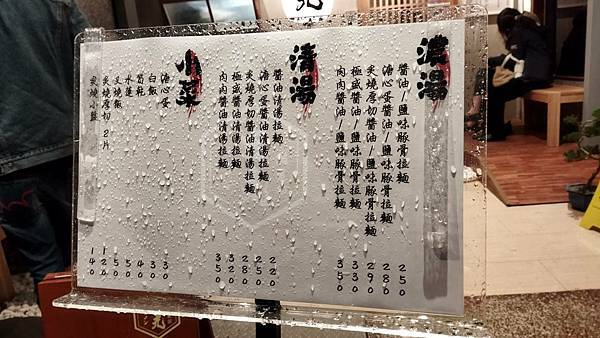 濃湯
醬油/鹽味豚骨拉麵 250
溏心蛋醬油/鹽味豚骨拉麵 280
炙燒厚切醬油/鹽味豚骨拉麵 290
極盛醬油/鹽味豚骨拉麵 330
肉肉醬油/鹽味豚骨拉麵 350
清湯
醬油清湯拉麵 220
溏心蛋醬油清湯拉麵 250
炙燒厚切醬油清湯拉麵 280
極盛醬油清湯拉麵 320
肉肉醬油清湯拉麵 350
小菜
溏心蛋 30
白飯 30
筍乾 40
水蓮 50
叉燒飯 50
炙燒厚切 2片 120
炙燒小盤 140